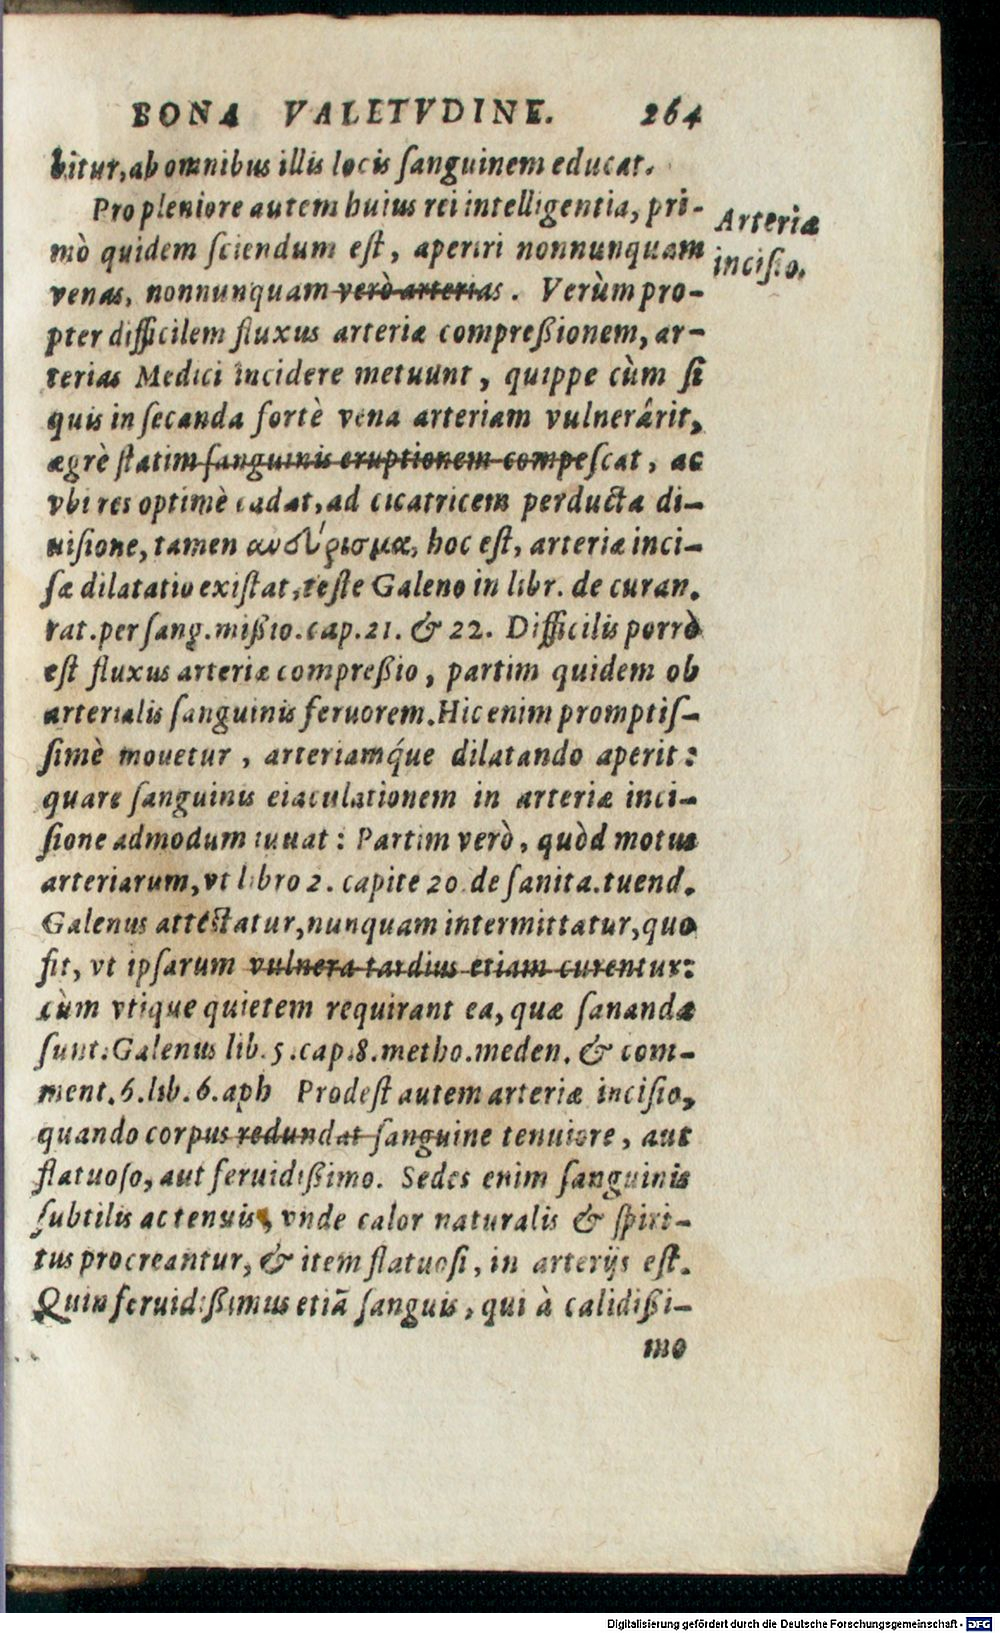 BONA VALETVDINE. 264
bitur, ab omnibus illis locis ſanguinem educat.
Pro pleniore autem huius rei intelligentia, pri-
mò quidem ſciendum eſt, aperiri nonnunquam
venas, nonnunquam verò arterias. Verùm pro-
pter difficilem fluxus arteriæ compreßionem, ar-
terias Medici incidere metuunt, quippe cùm ſi
quis in ſecanda fortè vena arteriam vulnerârit,
ægrè ſtatim ſanguinis eruptionem compeſcat, ac
vbi res optimè cadat, ad cicatricem perducta di-
uiſione, tamen ανδύρισμα, hoc eſt, arteriæ inci-
ſæ dilatatio exiſtat, teſte Galeno in libr. de curan.
rat. per ſang. mißio. cap. 21. & 22. Difficilis porrò
eſt fluxus arteriæ compreßio, partim quidem ob
arterialis ſanguinis feruorem. Hic enim promptiſ-
ſimè mouetur, arteriamq́ue dilatando aperit:
quare ſanguinis eiaculationem in arteriæ inci-
ſione admodum iuuat: Partim verò, quòd motus
arteriarum, vt libro 2. capite 20 de ſanita. tuend.
Galenus atteſtatur, nunquam intermittatur, quo
fit, vt ipſarum vulnera tardius etiam curentur:
cùm vtique quietem requirant ea, quæ ſanandæ
ſunt. Galenus lib. 5. cap. 8. metho. meden. & com-
ment. 6. lib. 6. aph Prodeſt autem arteriæ inciſio,
quando corpus redundat ſanguine tenuiore, aut
flatuoſo, aut feruidißimo. Sedes enim ſanguinis
ſubtilis ac tenuis, vnde calor naturalis & ſpiri-
tus procreantur, & item flatuoſi, in arterijs eſt.
Quin feruidißimus etiã ſanguis, qui à calidißi-
mo
Arteriæ
inciſio.
Digitalisierung gefördert durch die Deutsche Forschungsgemeinschaft - DFG